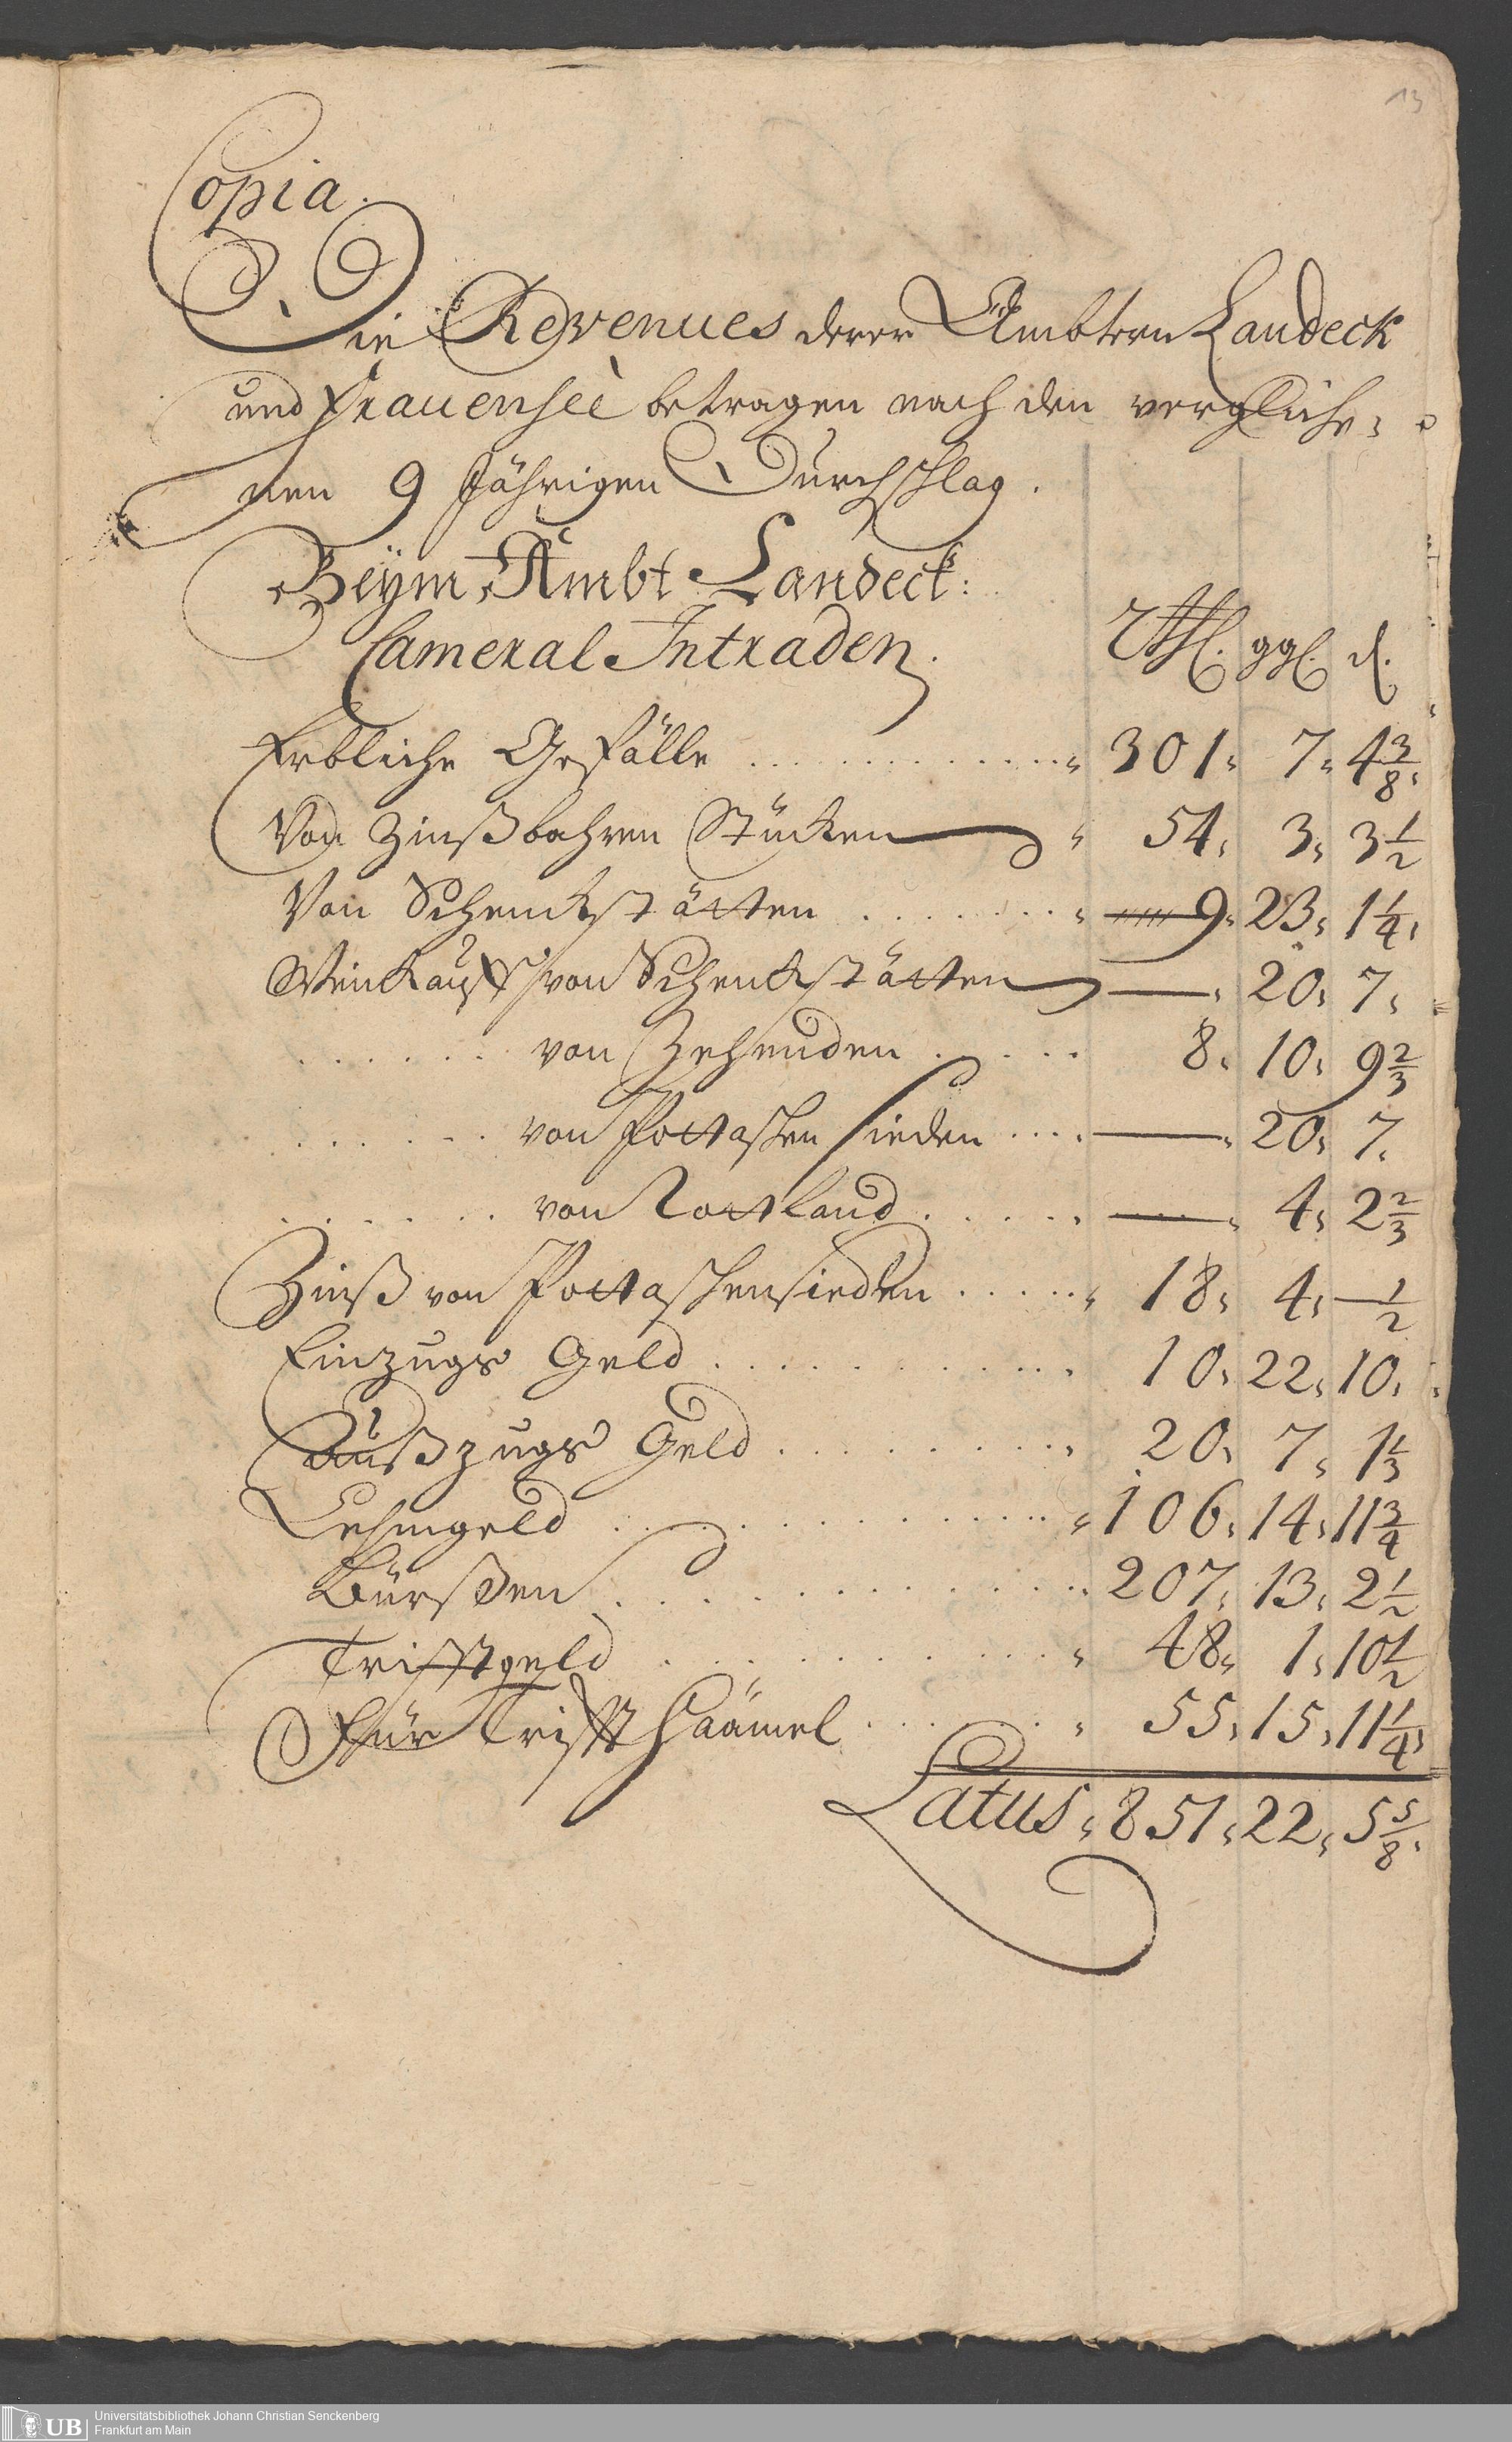 13
Copia.
Die Revenues derer Ämbtern Landeck
und Frauensee betragen nach den vergliche-
nen 9 Jährigen Durchschlag.
Beÿm Ambt Landeck:
Cameral Intraden.
Rthl. ggl. d.
Erbliche Gefälle . . . . . . . . . . . . . 301. 7. 4 3/8.
Von Zinßbahren Stücken 54. 3. 3 1/2
Von Schenckstätten . . . . . . . 9. 23. 1 1/4.
Weinkauff von Schenckstätten —. 20. 7.
. . . . . . von Zehenden . . . . 8. 10. 9 2/3
. . . . . . von Pottaschen sieden . . . . —. 20. 7.
. . . . . . von Rottland . . . . . —. 4. 2 2/3
Zinß von Pottaschensieden . . . . . 18. 4. — 1/2
Einzugs Geld . . . . . . . . . . . 10. 22. 10.
Außzugs Geld . . . . . . . . . 20. 7. 1 1/3
Lehngeld . . . . . . . . . . . . . 106. 14. 11 3/4
Bürßen . . . . . . . . . . . . . 207. 13. 2 1/2
Trifftgeld . . . . . . . . . . . . 48. 1. 10 1/2
Für Trifft Haämel . . . . . . 55. 15. 11 1/4.
Latus. 851. 22. 5 5/8.
UB
Universitätsbibliothek Johann Christian Senckenberg
Frankfurt am Main